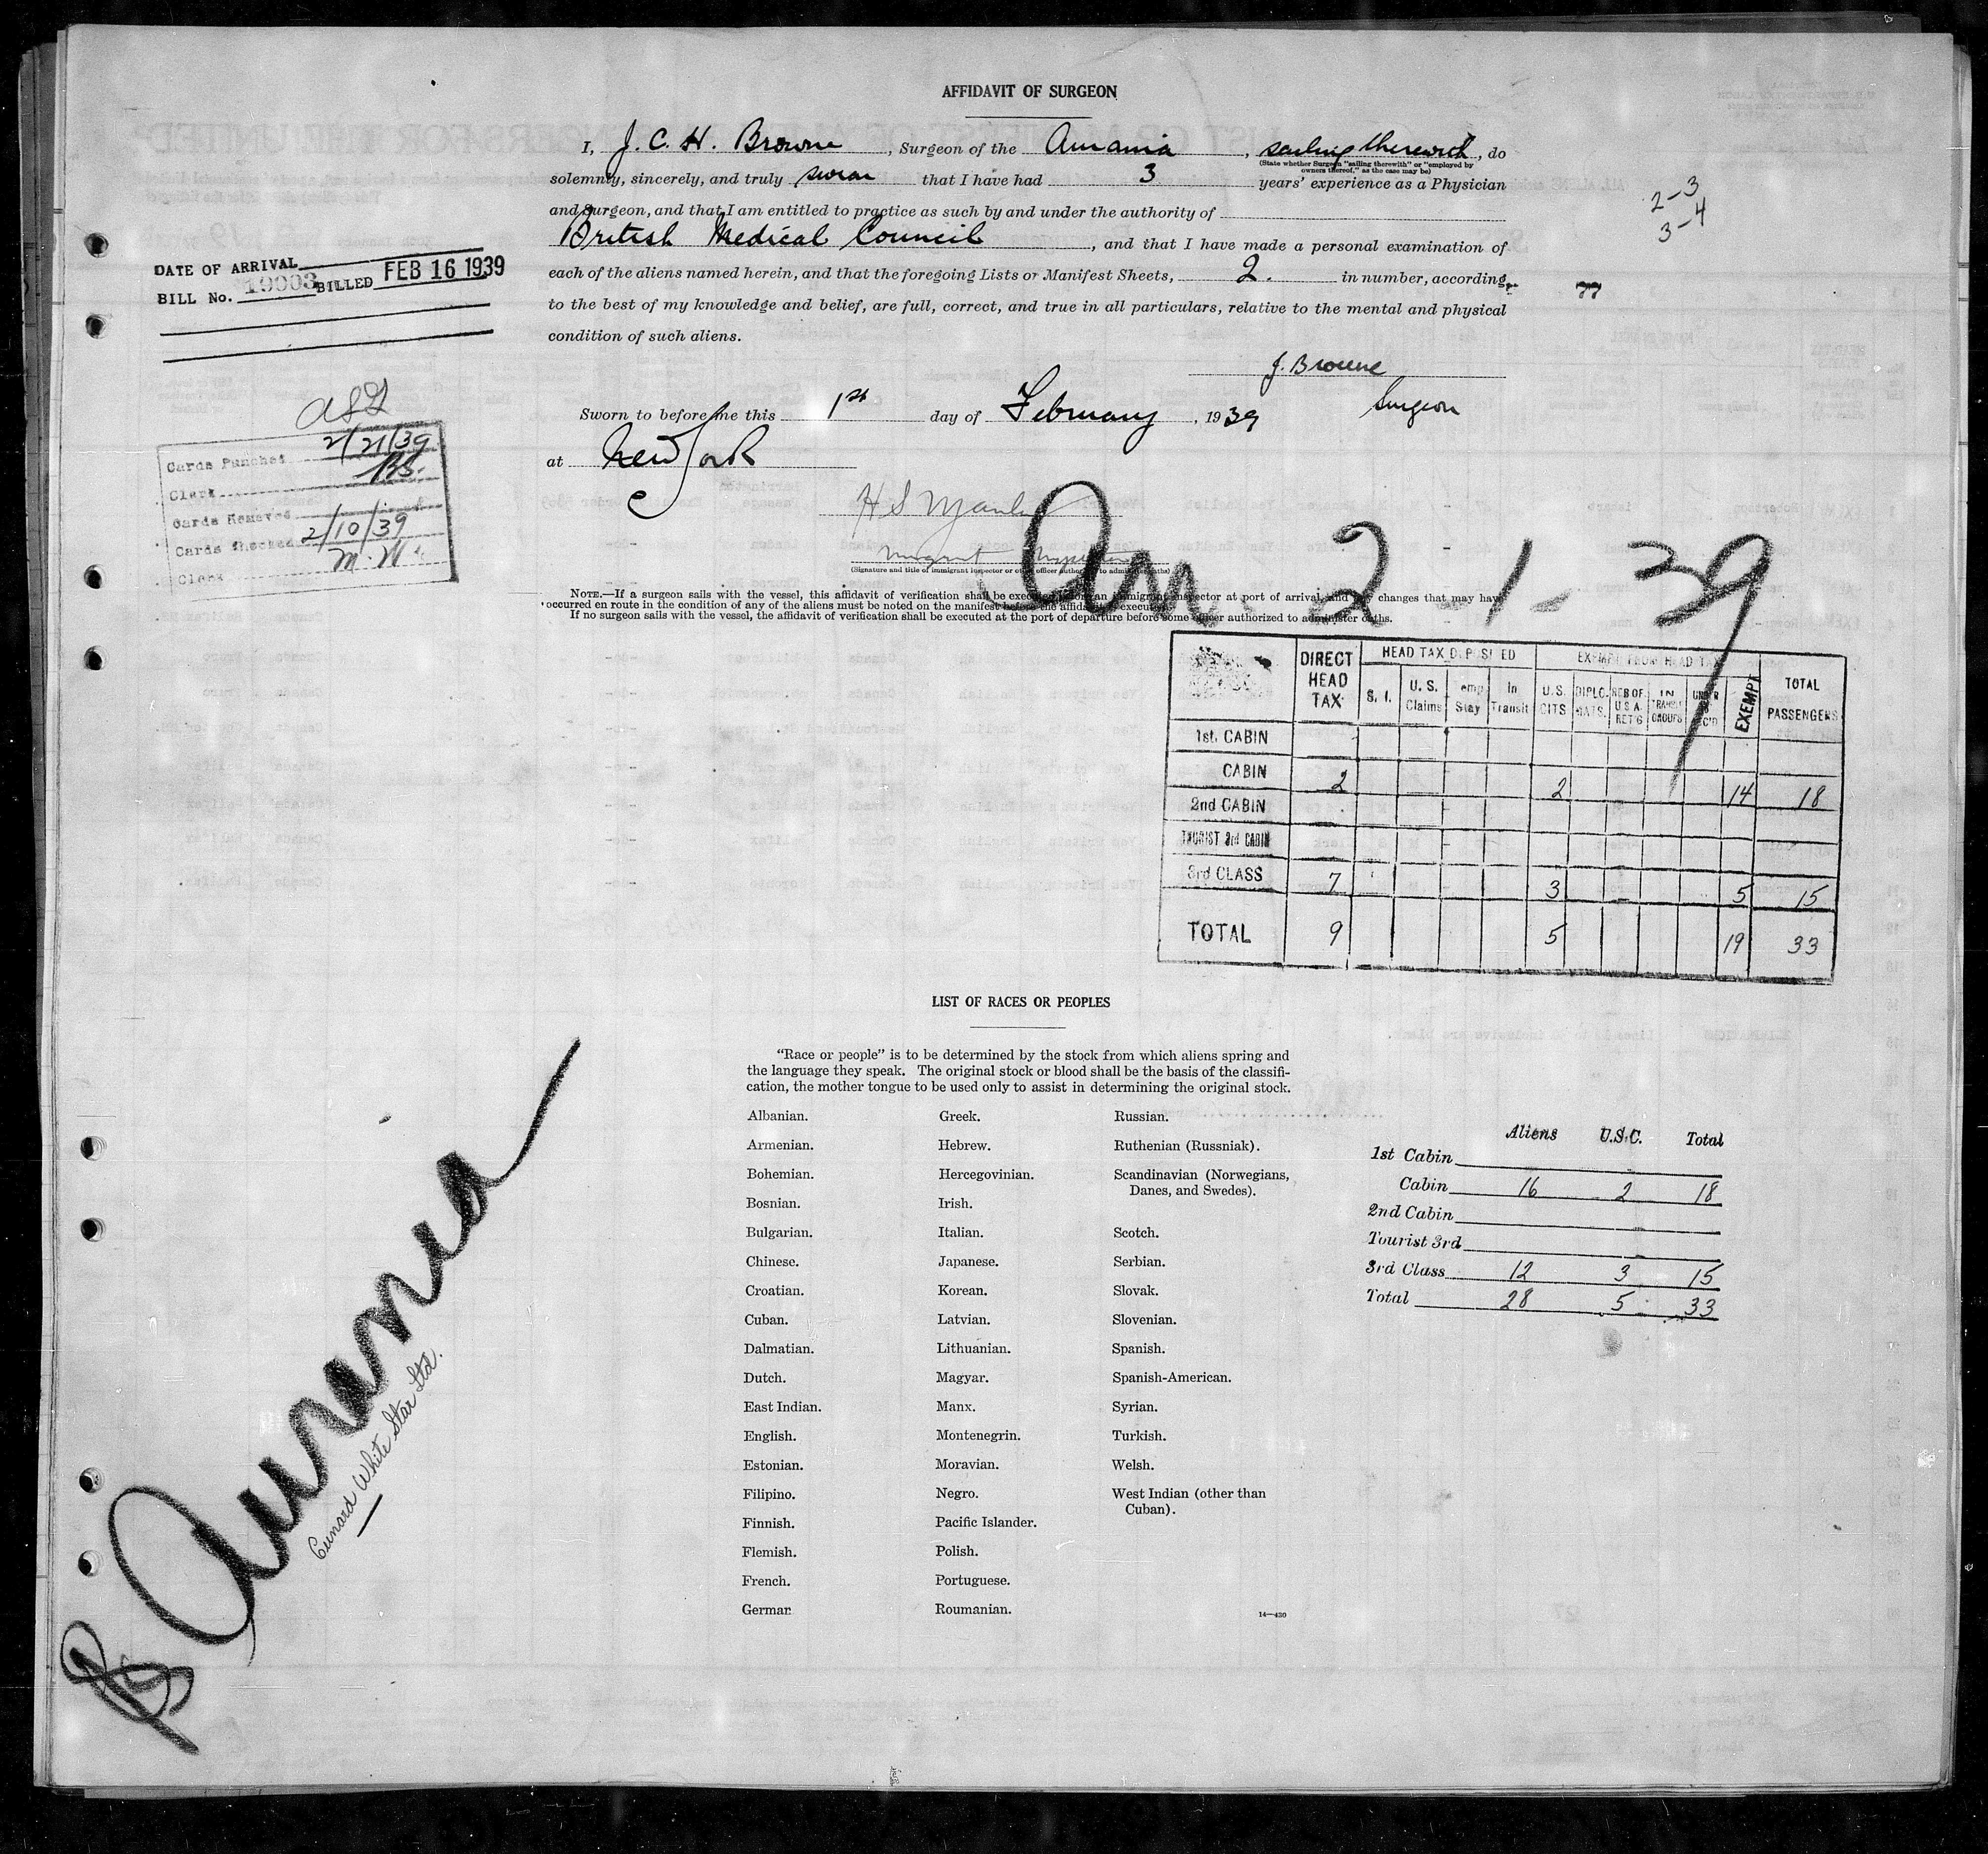 AFFIDAVIT OF SURGEON
I, J. C. H. Browne, Surgeon of the Aurania, sailing therewith, do
(State whether Surgeon "sailing therewith" or "employed by
owners thereof," as the case may be)
solemnly, sincerely, and truly swear that I have had 3 years' experience as a Physician
and Surgeon, and that I am entitled to practice as such by and under the authority of
British Medical Council, and that I have made a personal examination of
each of the aliens named herein, and that the foregoing Lists or Manifest Sheets, 2. in number, according
to the best of my knowledge and belief, are full, correct, and true in all particulars, relative to the mental and physical
condition of such aliens.
2-3
3-4
77
DATE OF ARRIVAL
BILL No. 19003 BILLED FEB 16 1939
J. Browne
Surgeon
Sworn to before me this 1st day of February, 1939
at New York
Cards Punched 2/21/39
Clerk BS.
Cards Removed
Cards Checked 2/10/39
Clerk M. W.
H S
(Signature and title of immigrant inspector or other officer authorized to administer oaths)
2-1-39
NOTE.—If a surgeon sails with the vessel, this affidavit of verification shall be executed before an immigrant inspector at port of arrival, and any changes that may have
occurred en route in the condition of any of the aliens must be noted on the manifest before the affidavit is executed.
If no surgeon sails with the vessel, the affidavit of verification shall be executed at the port of departure before some officer authorized to administer oaths.
DIRECT HEAD TAX HEAD TAX DEPOSITED EXEMPT FROM HEAD TAX TOTAL PASSENGERS
S. I. U. S. Claims Temp Stay In Transit U. S. CITS DIPLO. MATS. RES OF U.S.A. RET'G IN TRANSIT GROUPS UNDER EXEMPT
1st. CABIN
CABIN 2 2 14 18
2nd CABIN
TOURIST 3rd CABIN
3rd CLASS 7 3 5 15
TOTAL 9 5 19 33
LIST OF RACES OR PEOPLES
"Race or people" is to be determined by the stock from which aliens spring and
the language they speak. The original stock or blood shall be the basis of the classifi-
cation, the mother tongue to be used only to assist in determining the original stock.
Albanian. Greek. Russian.
Armenian. Hebrew. Ruthenian (Russniak).
Bohemian. Hercegovinian. Scandinavian (Norwegians,
Danes, and Swedes).
Bosnian. Irish.
Bulgarian. Italian. Scotch.
Chinese. Japanese. Serbian.
Croatian. Korean. Slovak.
Cuban. Latvian. Slovenian.
Dalmatian. Lithuanian. Spanish.
Dutch. Magyar. Spanish-American.
East Indian. Manx. Syrian.
English. Montenegrin. Turkish.
Estonian. Moravian. Welsh.
Filipino. Negro. West Indian (other than
Cuban).
Finnish. Pacific Islander.
Flemish. Polish.
French. Portuguese.
German Roumanian.
14—430
Aliens U.S.C. Total
1st Cabin
Cabin 16 2 18
2nd Cabin
Tourist 3rd
3rd Class 12 3 15
Total 28 5 33
Aurania
Cunard White Star Ltd.